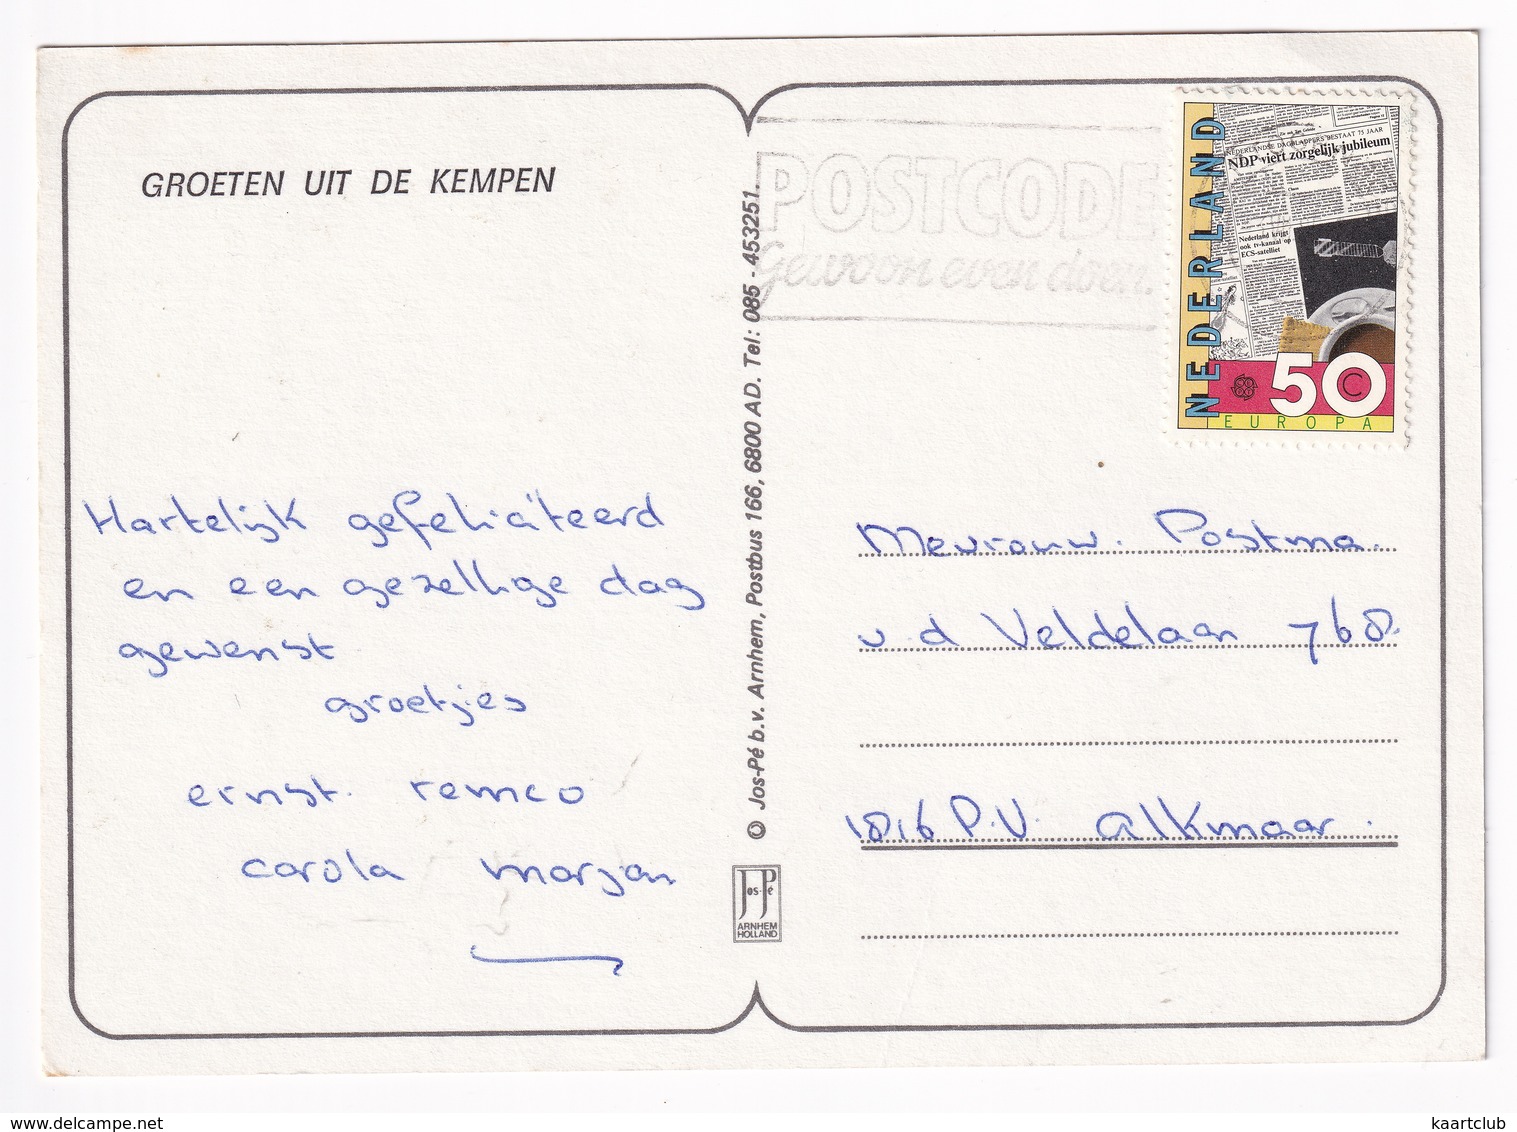 GROETEN UIT DE KEMPEN
Hartelijk gefeliciteerd
en een gezellige dag
gewenst
groetjes
ernst. remco
carola marjan
© Jos-Pé b.v. Arnhem, Postbus 166, 6800 AD. Tel: 085 - 453251.
Jos-Pé
ARNHEM
HOLLAND
POSTCODE
Gewoon even doen.
NEDERLAND
NEDERLANDSE DAGBLADPERS BESTAAT 75 JAAR
NDP viert zorgelijk jubileum
Nederland krijgt
ook tv-kanaal op
ECS-satelliet
50 C
EUROPA
Mevrouw. Postma.
v. d Veldelaan 768.
1816 P.V. Alkmaar.
www.delcampe.net
kaartclub